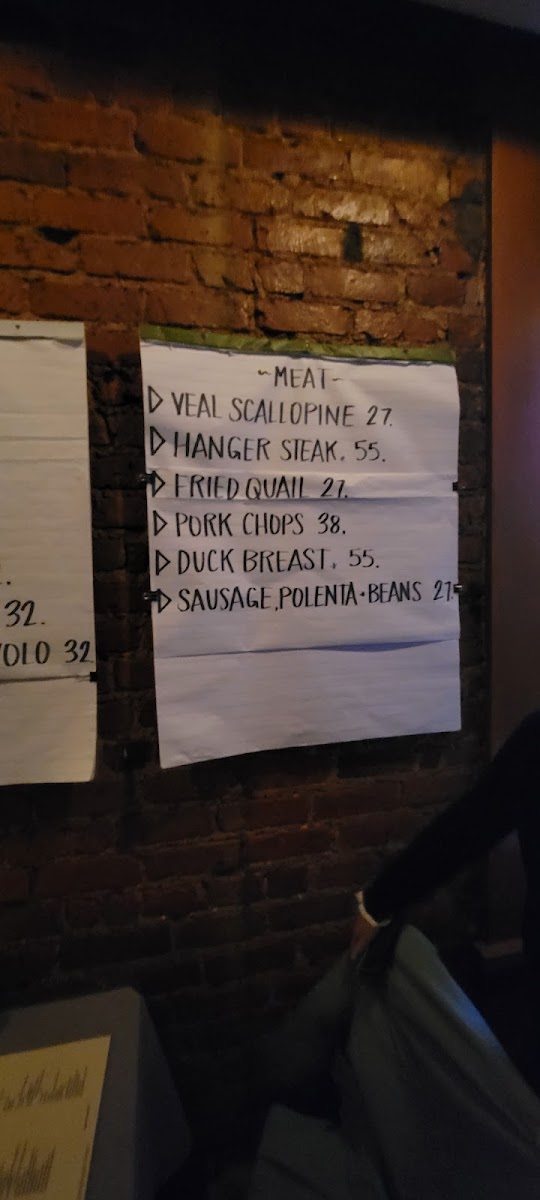 ~MEAT~
▷ VEAL SCALLOPINE 27.
▷ HANGER STEAK. 55.
▷ FRIED QUAIL 27.
▷ PORK CHOPS 38.
▷ DUCK BREAST. 55.
▷ SAUSAGE, POLENTA + BEANS 27.
32.
OLO 32